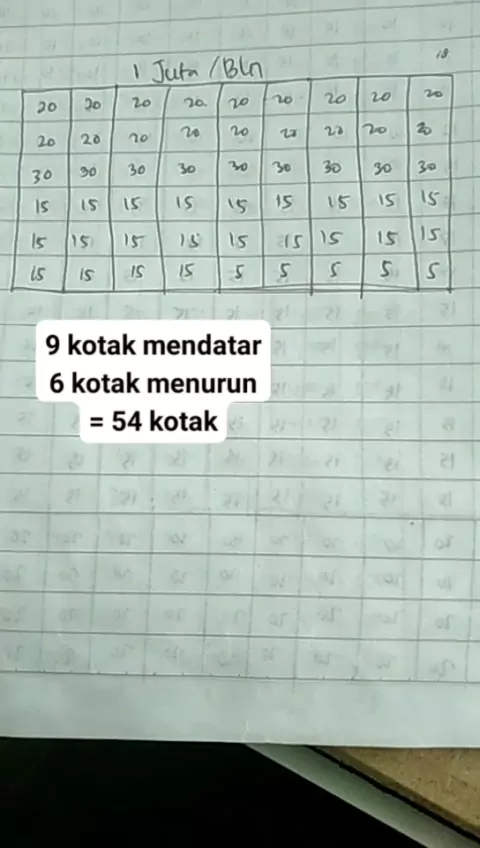 18
1 Juta / Bln
20 20 20 20 20 20 20 20 20
20 20 20 20 20 20 20 20 20
30 30 30 30 30 30 30 30 30
15 15 15 15 15 15 15 15 15
15 15 15 15 15 15 15 15 15
15 15 15 15 5 5 5 5 5
9 kotak mendatar
6 kotak menurun
= 54 kotak